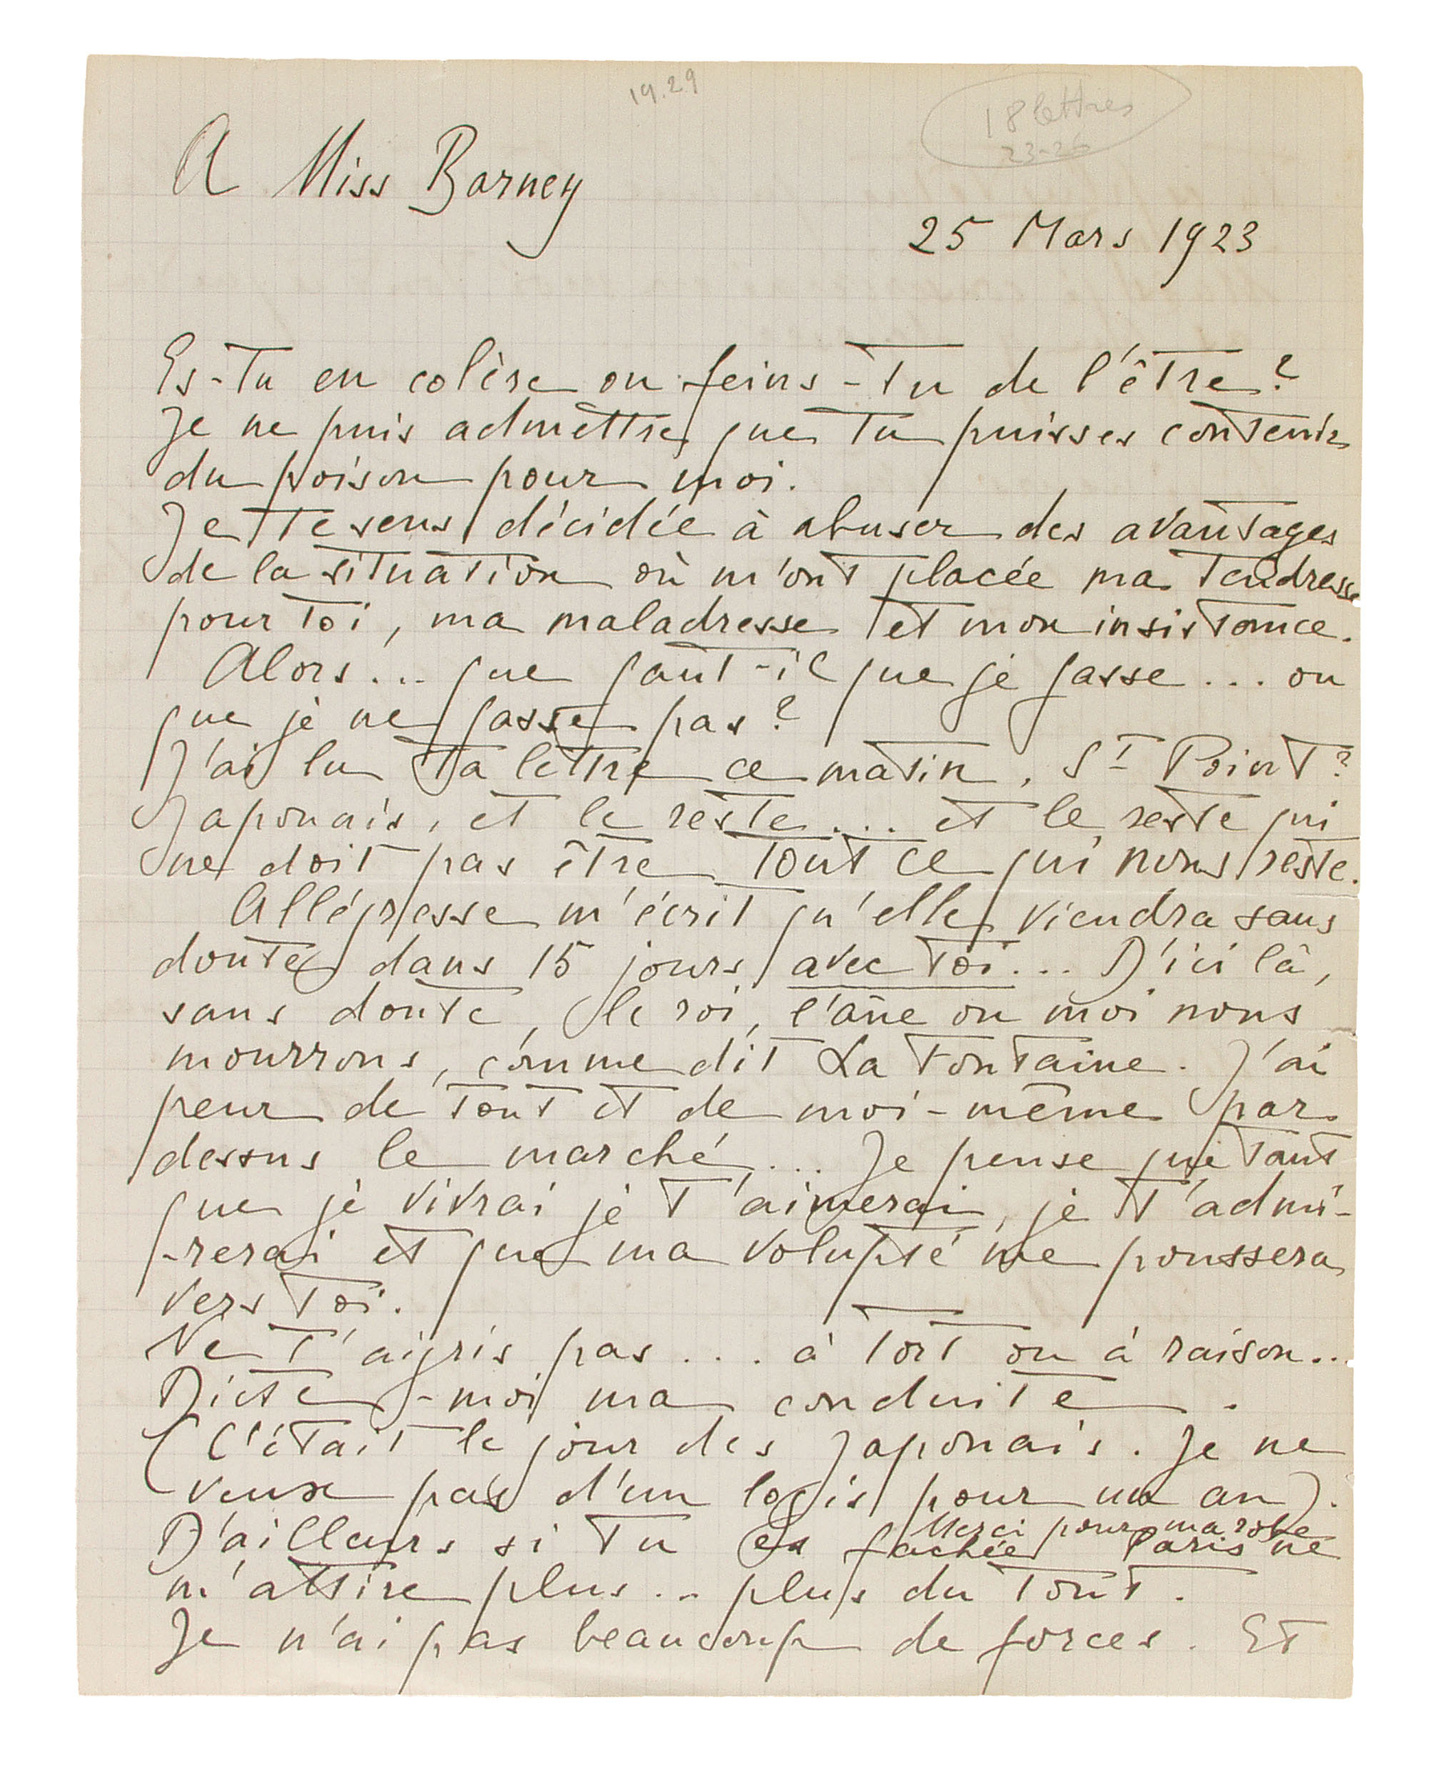 19.29
18 lettres
23-26
A Miss Barney
25 Mars 1923
Es-tu en colère ou feins-tu de l'être?
Je ne puis admettre que tu puisses contenir
du poison pour moi.
Je te sens décidée à abuser des avantages
de la situation où m'ont placée ma tendresse
pour toi, ma maladresse et mon insistance.
Alors... que faut-il que je fasse... ou
que je ne fasse pas?
J'ai lu ta lettre ce matin. St Point?
Japonais, et le reste.... et le reste qui
ne doit pas être tout ce qui nous reste.
Allégresse m'écrit qu'elle viendra sans
doute dans 15 jours avec toi... D'ici là,
sans doute, le roi, l'âne ou moi nous
mourrons, comme dit La Fontaine. J'ai
peur de tout et de moi-même par
dessus le marché.... Je pense que tant
que je vivrai je t'aimerai, je t'admi-
-rerai et que ma volupté me poussera
vers toi.
Ne t'aigris pas... à tort ou à raison...
Dicte-moi ma conduite.
(C'était le jour des Japonais. Je ne
veux pas d'un logis pour un an).
Merci pour ma robe
D'ailleurs si tu es fâchée Paris ne
m'attire plus.. plus du tout.
Je n'ai pas beaucoup de forces. Et